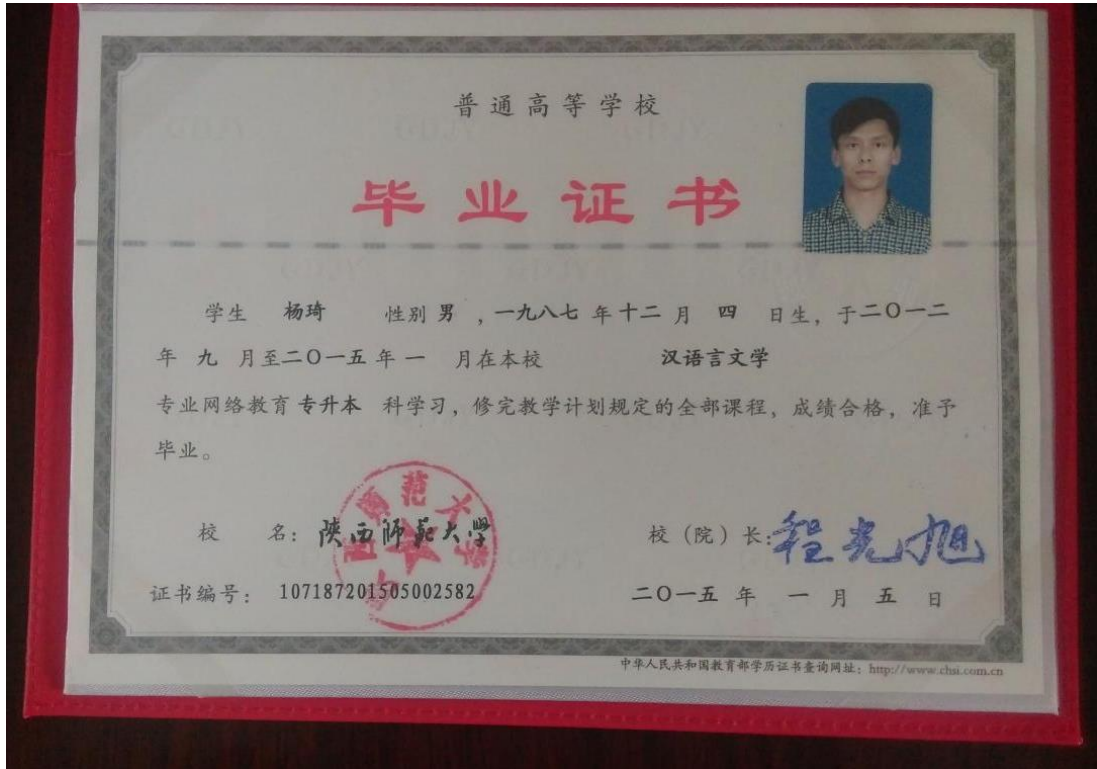 普通高等学校
毕业证书
学生 杨琦 性别 男 ，一九八七 年 十二 月 四 日生，于二〇一二
年 九 月至二〇一五 年 一 月在本校 汉语言文学
专业网络教育 专升本 科学习，修完教学计划规定的全部课程，成绩合格，准予
毕业。
校 名：陕西师范大学 校（院）长：程光旭
证书编号： 107187201505002582 二〇一五 年 一 月 五 日
中华人民共和国教育部学历证书查询网址：http://www.chsi.com.cn